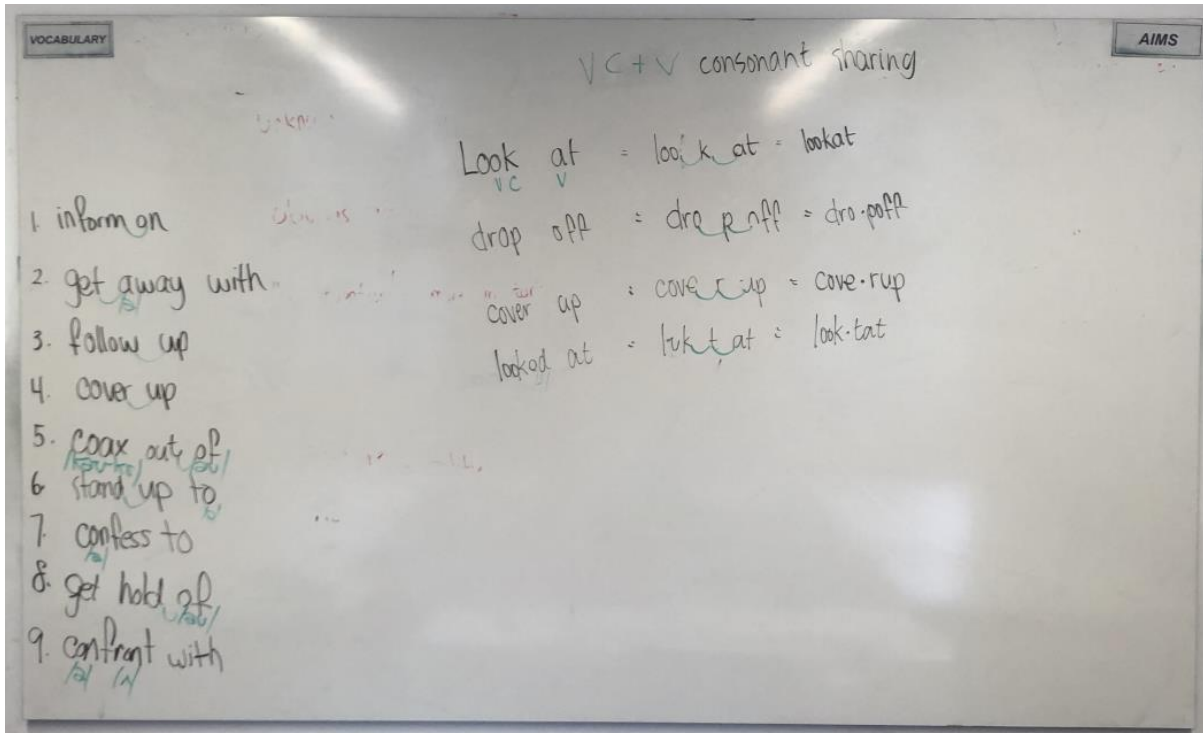 VOCABULARY
AIMS
VC + V consonant sharing
Look at = look at = lookat
VC V
drop off = drop off = dro.poff
cover up = cover up = cove.rup
looked at = lʊk t at = look.tat
1. inform on
2. get away with
/ə/
3. follow up
4. cover up
5. coax out of
/əv/
6 stand up to
7. confess to
/ə/
8. get hold of
/əv/
9. confront with
/ə/ /ʌ/